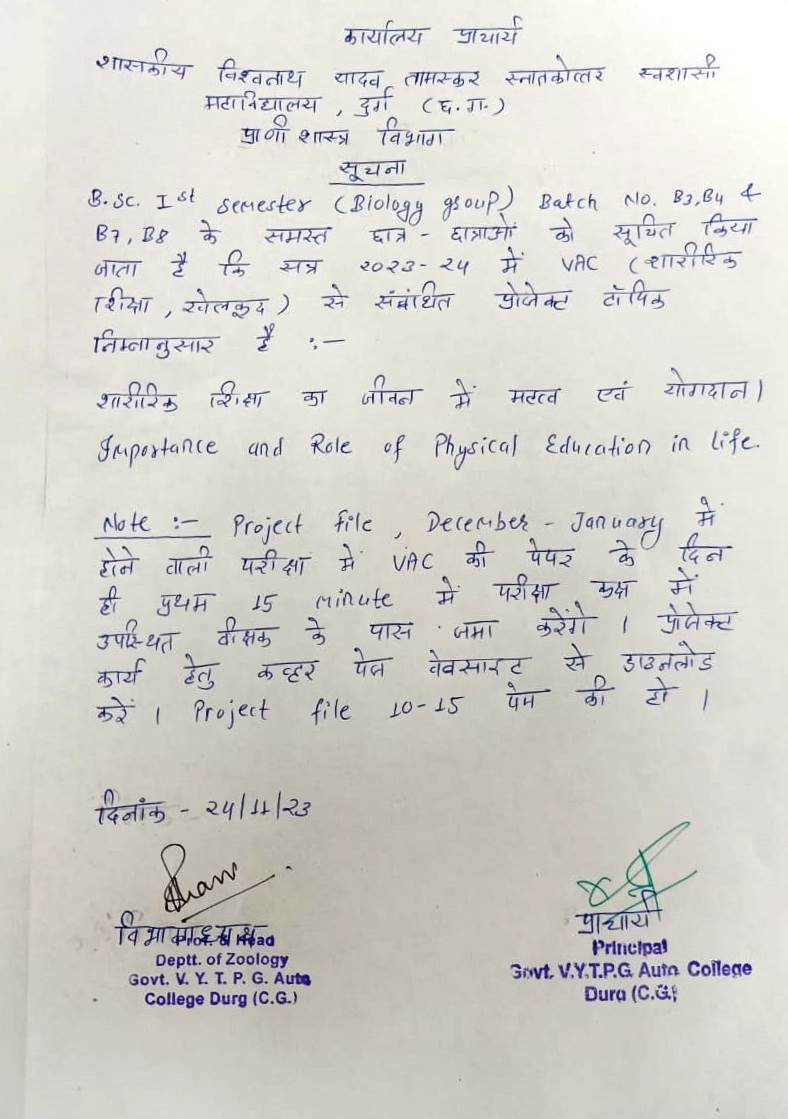 कार्यालय प्राचार्य
शासकीय विश्वनाथ यादव तामस्कर स्नातकोत्तर स्वशासी
महाविद्यालय, दुर्ग (छ.ग.)
प्राणी शास्त्र विभाग
सूचना
B.Sc. Ist semester (Biology group) Batch No. B3,B4 &
B7, B8 के समस्त छात्र - छात्राओं को सूचित किया
जाता है कि सत्र २०२३-२४ में VAC (शारीरिक
शिक्षा, खेलकूद) से संबंधित प्रोजेक्ट टॉपिक
निम्नानुसार है :-
शारीरिक शिक्षा का जीवन में महत्व एवं योगदान।
Importance and Role of Physical Education in life.
Note :- Project file, December - January में
होने वाली परीक्षा में VAC की पेपर के दिन
ही प्रथम 15 minute में परीक्षा कक्ष में
उपस्थित वीक्षक के पास जमा करेंगे । प्रोजेक्ट
कार्य हेतु कव्हर पेज वेवसाइट से डाउनलोड
करें । Project file 10-15 पेज की हो ।
दिनांक - २४/11/२३
विभागाध्यक्ष
Prof. & Head
Deptt. of Zoology
Govt. V. Y. T. P. G. Auto
College Durg (C.G.)
प्राचार्य
Principal
Govt. V.Y.T.P.G. Auto. College
Durg (C.G)